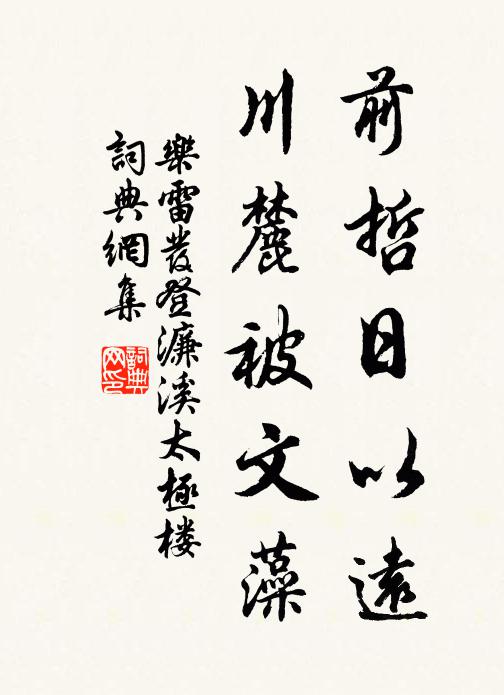 前哲日以遠
川麓被文藻
樂雷發登濂溪太極楼
詞典網集
詞典
网印